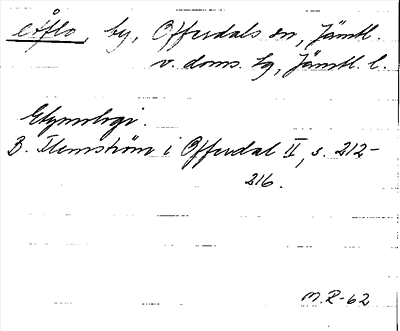 Åflo, by, Offerdals sn, Jämtl.
v. doms. hg, Jämtl. l.
Etymologi.
B. Flemström i Offerdal II, s. 212-
216.
M.R-62